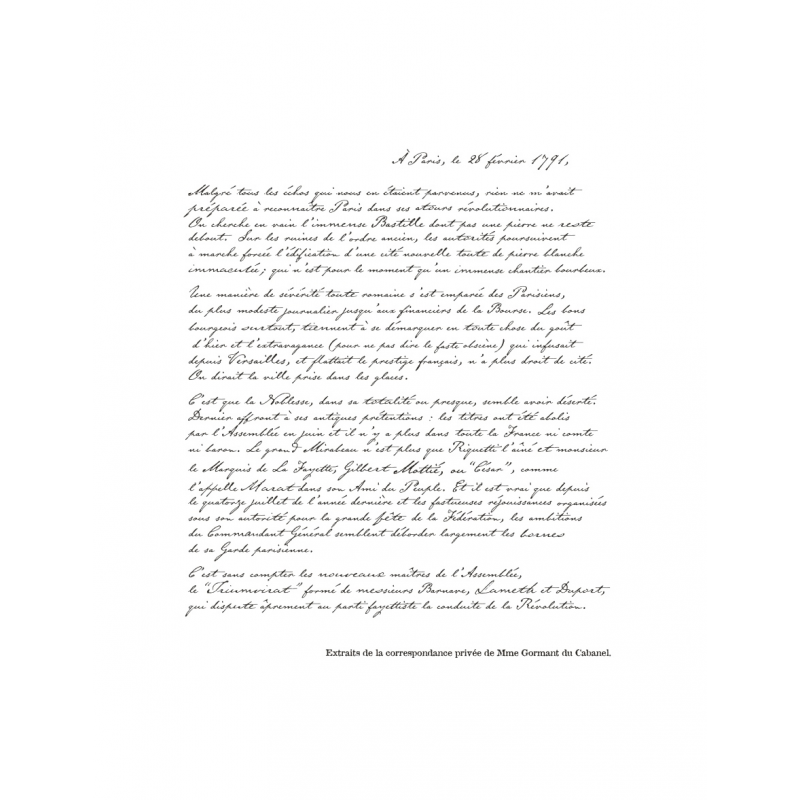 À Paris, le 28 février 1791,
Malgré tous les échos qui nous en étaient parvenus, rien ne m'avait
préparée à reconnaître Paris dans ses atours révolutionnaires.
On cherche en vain l'immense Bastille dont pas une pierre ne reste
debout. Sur les ruines de l'ordre ancien, les autorités poursuivent
à marche forcée l'édification d'une cité nouvelle toute de pierre blanche
immaculée ; qui n'est pour le moment qu'un immense chantier bourbeux.
Une manière de sévérité toute romaine s'est emparée des Parisiens,
du plus modeste journalier jusqu'aux financiers de la Bourse. Les bons
bourgeois surtout, tiennent à se démarquer en toute chose du goût
d'hier et l'extravagance (pour ne pas dire le faste obscène) qui infusait
depuis Versailles, et flattait le prestige français, n'a plus droit de cité.
On dirait la ville prise dans les glaces.
C'est que la Noblesse, dans sa totalité ou presque, semble avoir déserté.
Dernier affront à ses antiques prétentions : les titres ont été abolis
par l'Assemblée en juin et il n'y a plus dans toute la France ni comte
ni baron. Le grand Mirabeau n'est plus que Riquetti l'aîné et monsieur
le Marquis de La Fayette, Gilbert Mottié, ou "César", comme
l'appelle Marat dans son Ami du Peuple. Et il est vrai que depuis
le quatorze juillet de l'année dernière et les fastueuses réjouissances organisées
sous son autorité pour la grande fête de la Fédération, les ambitions
du Commandant Général semblent déborder largement les bornes
de sa Garde parisienne.
C'est sans compter les nouveaux maîtres de l'Assemblée,
le "Triumvirat" formé de messieurs Barnave, Lameth et Duport,
qui dispute âprement au parti fayettiste la conduite de la Révolution.
Extraits de la correspondance privée de Mme Gormant du Cabanel.